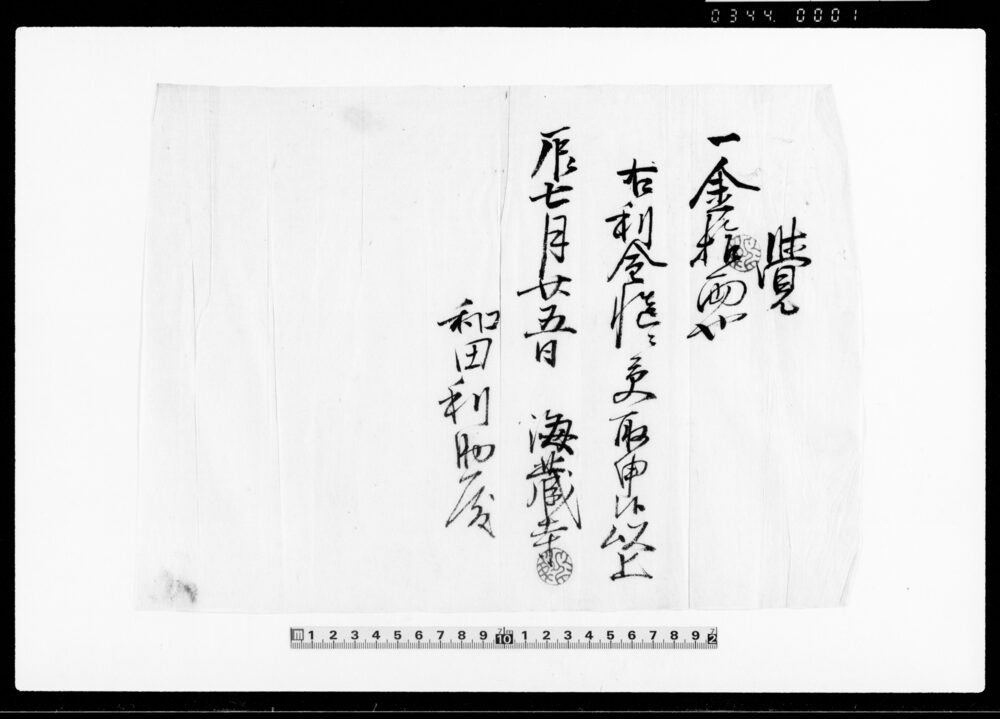 0344. 0001
覚
一金拾両也
右利金慥ニ受取申候以上
辰七月廿五日　海蔵寺
和田利助殿
m 1 2 3 4 5 6 7 8 9 10 1 2 3 4 5 6 7 8 9 2